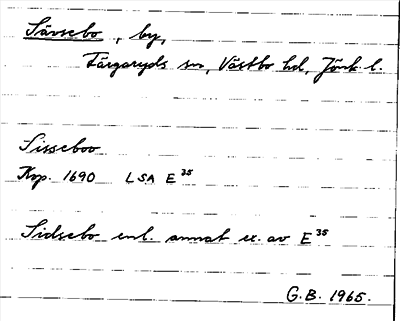 Sävsebo, by,
Färgaryds sn, Västbo hd, Jönk. l.
Sisseboo
Kop. 1690 LSA E 35
Sidsebo enl. annat ex. av E 35
G.B. 1965.